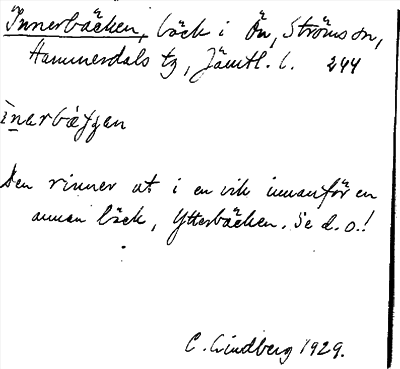 Innerbäcken, bäck i Ön, Ströms sn,
Hammerdals tg, Jämtl. l. 244
Den rinner ut i en vik innanför en
annan bäck, Ytterbäcken. Se d. o.!
C. Lindberg 1929.